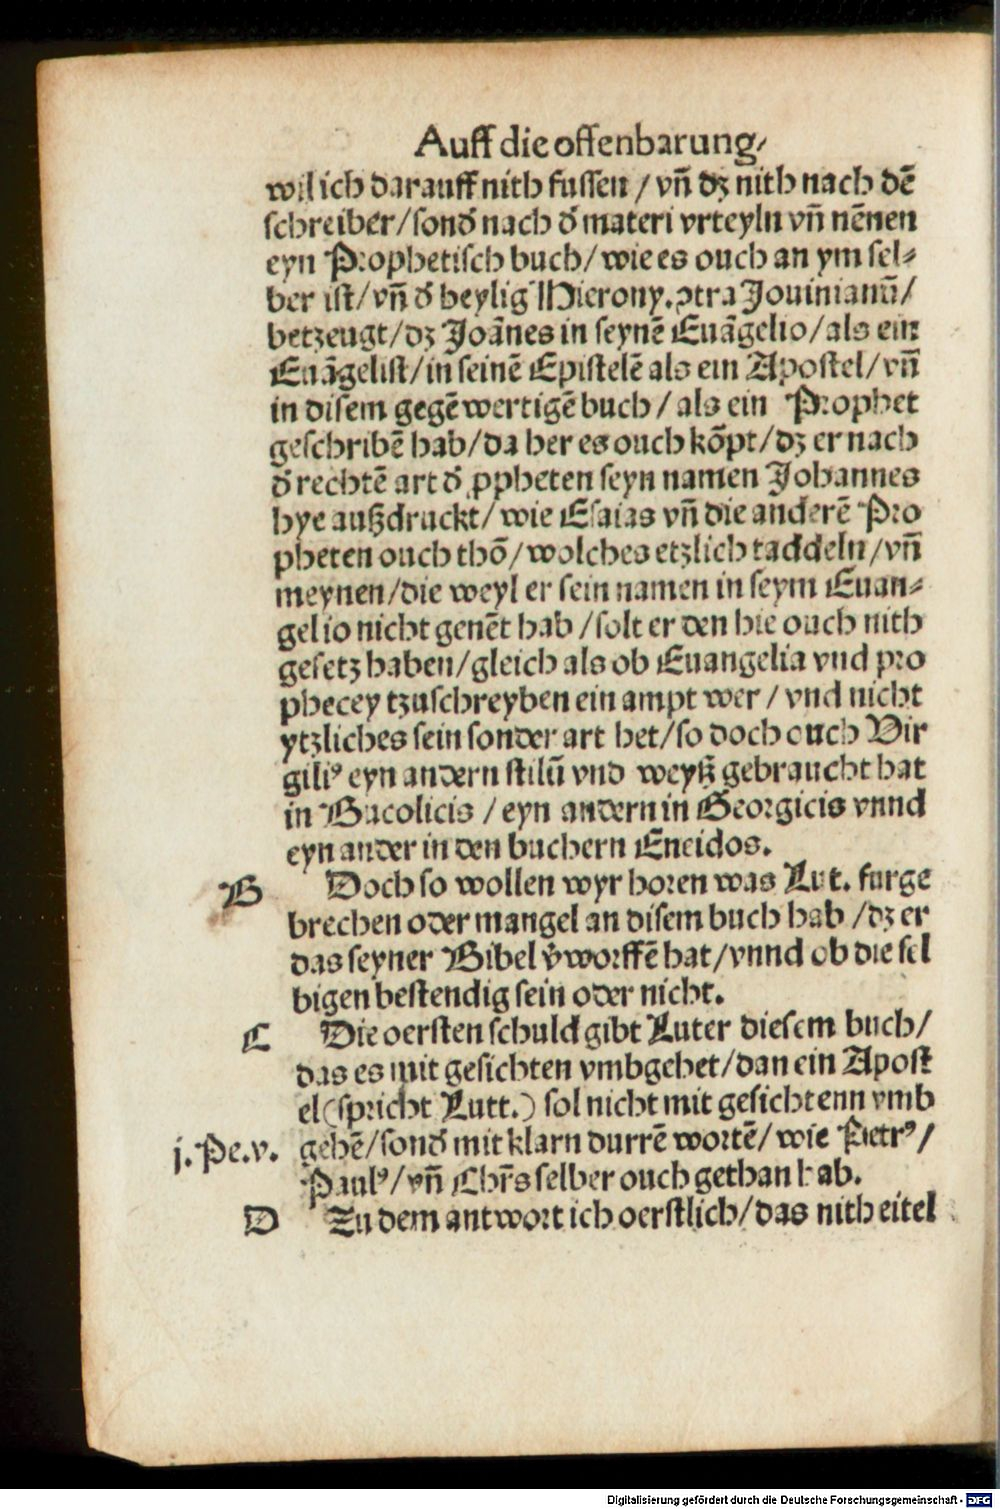 Auff die offenbarung/
wil ich darauff nith fussen / vn̄ dz nith nach dē
schreiber/sond̕ nach d̕ materi vrteyln vn̄ nēnen
eyn Prophetisch buch/wie es ouch an ym sel⸗
ber ist/vn̄ d̕ heylig Hierony.ꝯtra Jouinianū/
betzeugt/dz Joānes in seynē Euāgelio/als ein
Euāgelist/in seinē Epistelē als ein Apostel/vn̄
in disem gegēwertigē buch/als ein Prophet
geschribē hab/da her es ouch kōpt/dz er nach
d̕ rechtē art d̕ ꝓpheten seyn namen Johannes
hye außdruckt/wie Esaias vn̄ die anderē Pro
pheten ouch thō/wolches etzlich taddeln/vn̄
meynen/die weyl er sein namen in seym Euan⸗
gelio nicht genēt hab/solt er den hie ouch nith
gesetz haben/gleich als ob Euangelia vnd pro
phecey tzuschreyben ein ampt wer / vnd nicht
ytzliches sein sonder art het/so doch ouch Vir
giliꝰ eyn andern stilū vnd weyß gebraucht hat
in Bucolicis / eyn andern in Georgicis vnnd
eyn ander in den buchern Eneidos.
B Doch so wollen wyr horen was Lut. furge
brechen oder mangel an disem buch hab/dz er
das seyner Bibel v̕worffē hat/vnnd ob die sel
bigen bestendig sein oder nicht.
C Die oersten schuld gibt Luter diesem buch/
das es mit gesichten vmbgehet/dan ein Apost
el(spricht Lutt.) sol nicht mit gesichtenn vmb
j.Pe.v. gehē/sond̕ mit klarn durrē wortē/wie Pietrꝰ/
Paulꝰ/vn̄ Chr̄s selber ouch gethan hab.
D Zu dem antwort ich oerstlich/das nith eitel
Digitalisierung gefördert durch die Deutsche Forschungsgemeinschaft - DFG